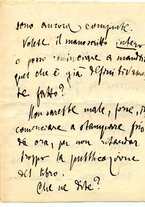 sono ancora compiute.
Volete il manoscritto intero
o posso cominciare a mandarvi
quel che è già definitivamen
te fatto?
Non sarebbe male, forse, in
cominciare a stampare fin
da ora, per non ritardar
troppo la pubblicazione
del libro.
Che ne dite?